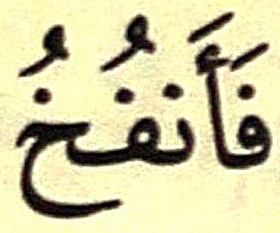 فَأَنفُخُ